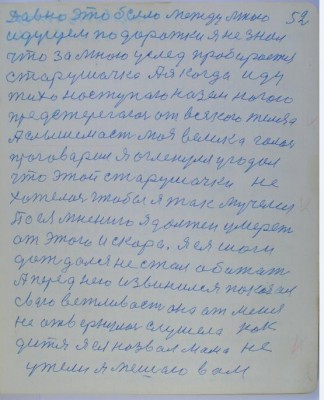 давно это было между мною 52
идущем по дорожки я не знал
что за мною услед пробирается
старушачка А я когда иду
тихо наступаю на зем ногою
предстерегаюсь от всякого
Аслышемаст моя велика голос
проговорил я огленулся угодал
что этой старушачки не
хотелось чтобы я так мучелся
По ея мнению я должен умереть
от этого и скоро. я ея шаги
дождался не стал обежат
А перед нею извинился показал
сваю вежливаст она от меня
не отвернулас слушела как
дитя я ея назвал мама не
ужели я мешаю вам